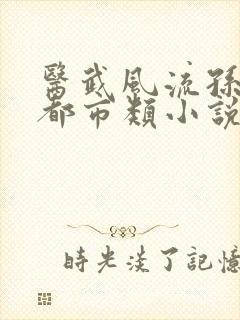 醫武風流孫
都市類小說
時光淡了記憶